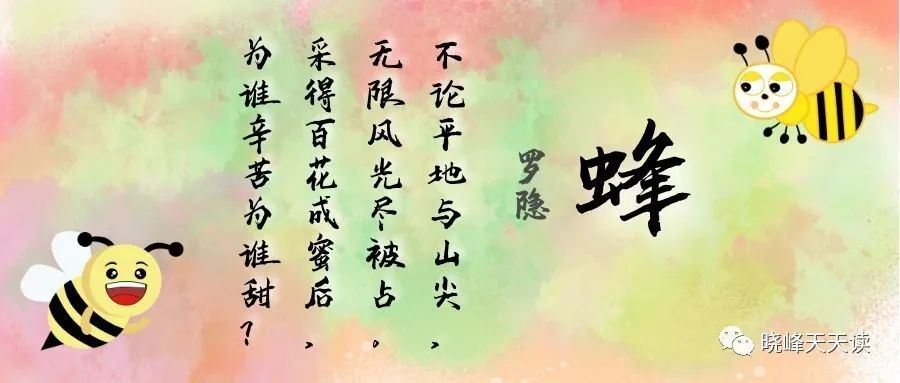 蜂
罗隐
不论平地与山尖，
无限风光尽被占。
采得百花成蜜后，
为谁辛苦为谁甜？
晓峰天天读